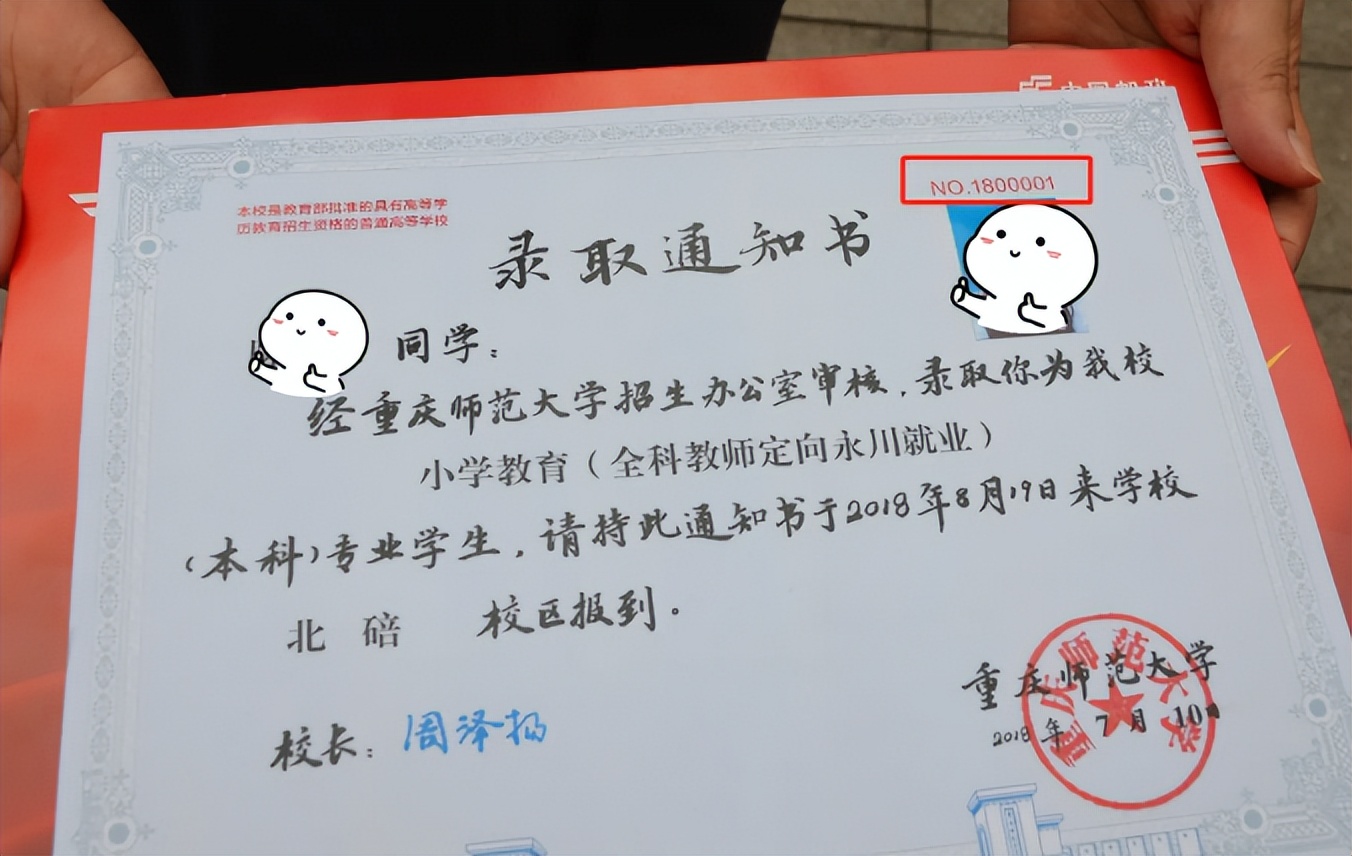 中国邮政
NO.1800001
本校是教育部批准的具有高等学
历教育招生资格的普通高等学校
录取通知书
同学：
经重庆师范大学招生办公室审核，录取你为我校
小学教育（全科教师定向永川就业）
（本科）专业学生，请持此通知书于2018年8月19日来学校
北碚 校区报到。
重庆师范大学
2018年7月10日
校长：周泽扬
重庆师范大学